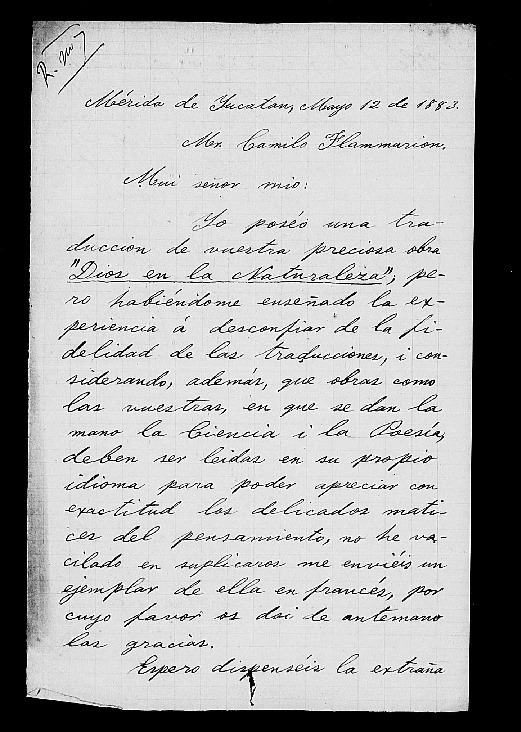 R. no
Mérida de Yucatan, Mayo 12 de 1883.
Mr. Camilo Flammarion.
Mui señor mio:
Yo poséo una tra-
duccion de vuestra preciosa obra
"Dios en la Naturaleza", pe-
ro habiéndome enseñado la ex-
periencia á desconfiar de la fi-
delidad de las traducciones, i con-
siderando, además, que obras como
las vuestras, en que se dan la
mano la Ciencia i la Poesía,
deben ser leidas en su propio
idioma para poder apreciar con
exactitud los delicados mati-
ces del pensamiento, no he va-
cilado en suplicaros me enviéis un
ejemplar de ella en francés, por
cuyo favor os doi de antemano
las gracias.
Espero dispenséis la extraña